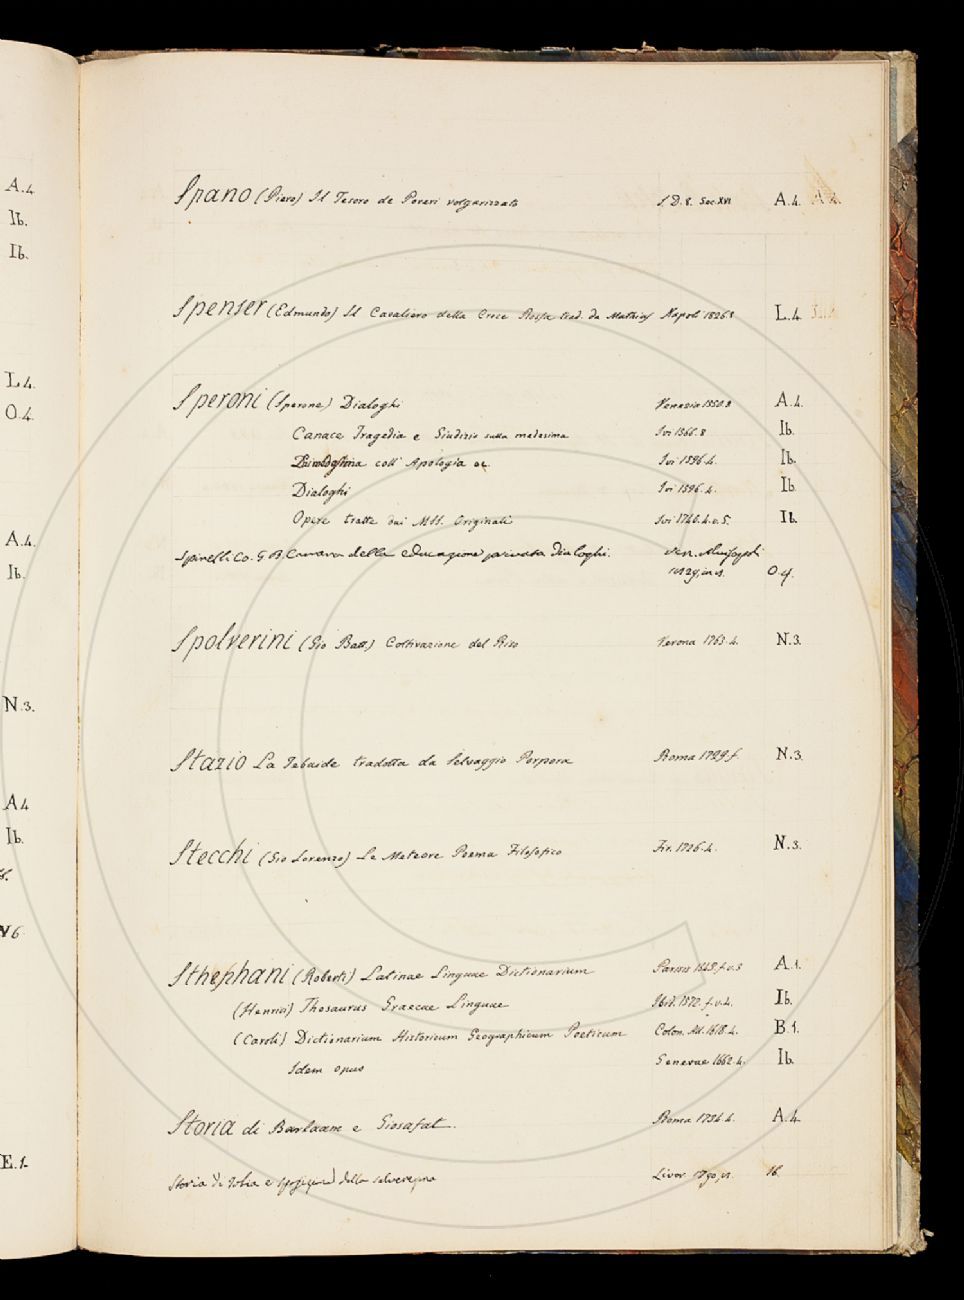 A.4
Ib.
Ib.
L4.
O.4
A.4.
Ib.
N.3.
A4
Ib.
V6
E.1.
Spano (Piero) Il Tesoro de Poveri volgarizzato S.D. 8. Sec. XVI A.4. A.4.
Spenser (Edmundo) Il Cavaliero della Croce Rossa trad. da Mathias Napoli 1826 8 L.4
Speroni (Sperone) Dialoghi Venezia 1550. 8 A.4.
Canace Tragedia e Giudizio sulla medesima Ivi 1566. 8 Ib.
coll' Apologia ec. Ivi 1596. 4. Ib.
Dialoghi Ivi 1596. 4. Ib.
Opere tratte dai MSS. Originali Ivi 1740. 4. v. 5. Ib.
Spinelli Co. G B. Canara della educazione privata dialoghi. Ven. Alvisopoli
1829, in 8. O.4.
Spolverini (Gio Batt.) Coltivazione del Riso Verona 1763. 4. N.3.
Stazio La Tebaide tradotta da Selvaggio Porpora Roma 1729. f. N.3.
Stecchi (Gio Lorenzo) Le Meteore Poema Filosofico Fir. 1726. 4. N.3.
Sthephani (Roberti) Latinae Linguae Dictionarium Parisiis 1543. f. v. 3 A.1.
(Henrici) Thesaurus Graecae Linguae Ibid. 1572. f. v. 4. Ib.
(Caroli) Dictionarium Historicum Geographicum Poeticum Colon. All. 1618. 4. B.1.
Idem opus Genevae 1662. 4. Ib.
Storia di Barlaam e Giosafat. Roma 1734. 4. A.4.
Storia di Tobia e della Livor. ib.